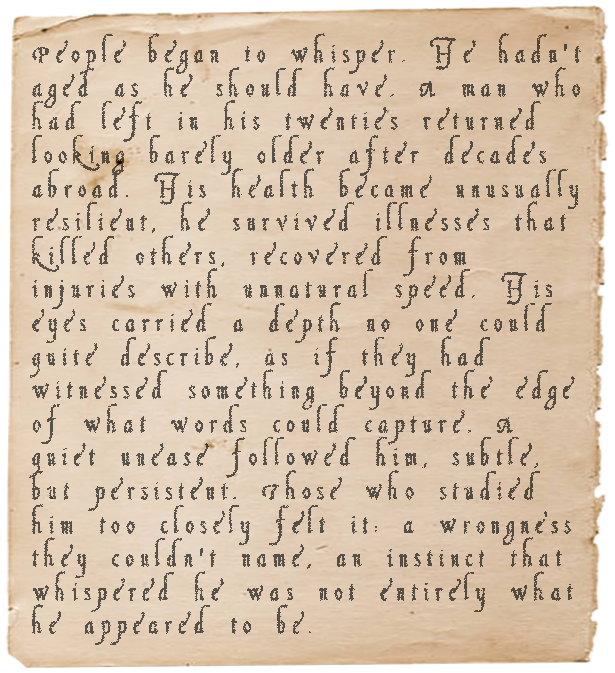 People began to whisper. He hadn't
aged as he should have. A man who
had left in his twenties returned
looking barely older after decades
abroad. His health became unusually
resilient, he survived illnesses that
killed others, recovered from
injuries with unnatural speed. His
eyes carried a depth no one could
quite describe, as if they had
witnessed something beyond the edge
of what words could capture. A
quiet unease followed him, subtle,
but persistent. Those who studied
him too closely felt it: a wrongness
they couldn't name, an instinct that
whispered he was not entirely what
he appeared to be.